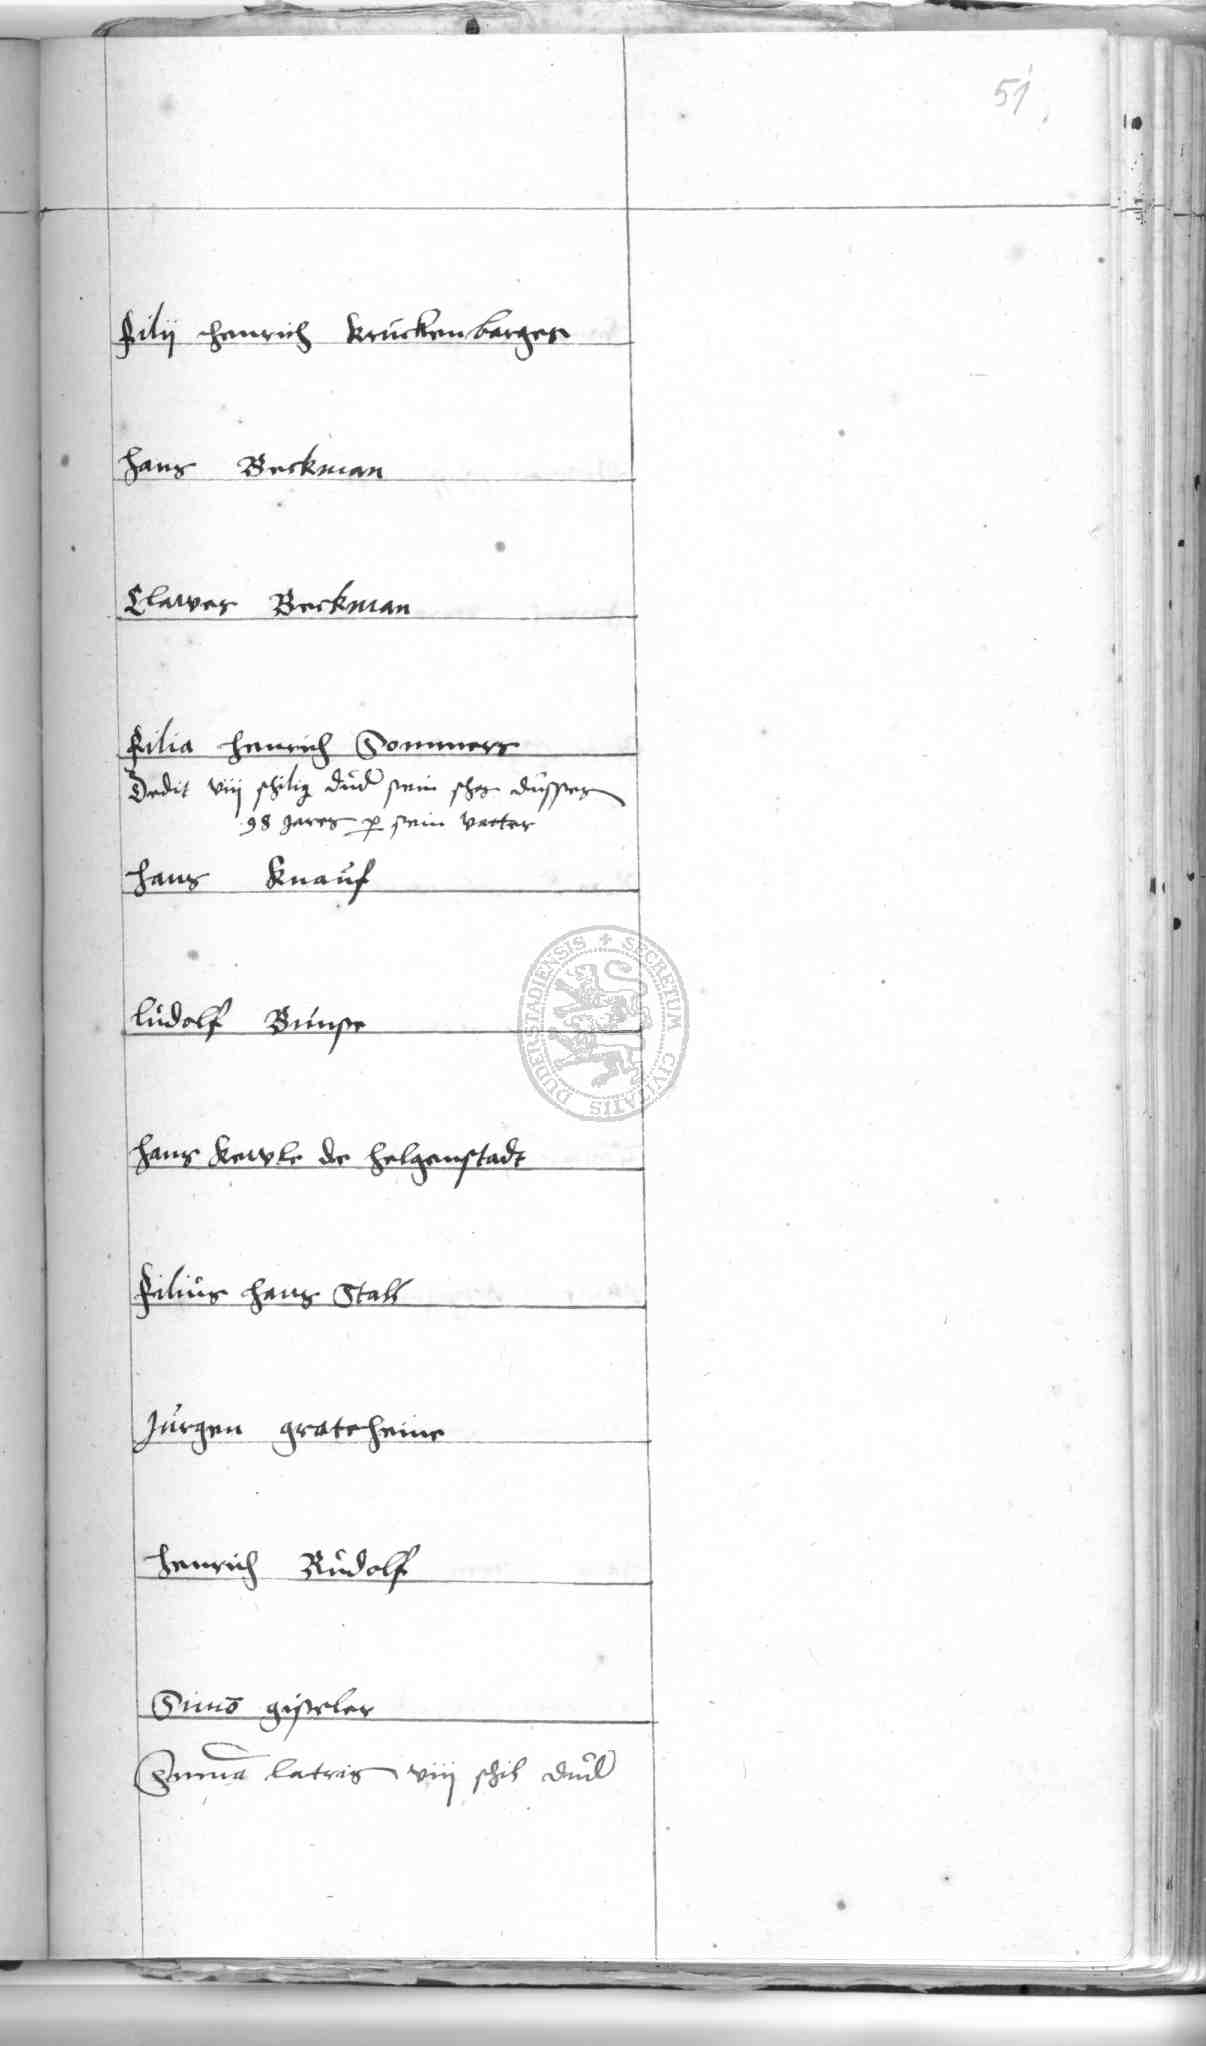 51
Filij Henrich Kruckenberges
Hans Beckman
Clawes Beckman
Filia Henrich Sommers
Dedit viij schilig dud sein schos dusses
98 Jares p sein vatter
Hans Knauf
Ludolf Bunse
Hans Kewle de Helgenstadt
Filius Hans Stall
Jurgen grateheine
Henrich Rudolf
Simō giseler
Summa latris viij schil dud
SECRETUM CIVITATIS DUDERSTADIENSIS